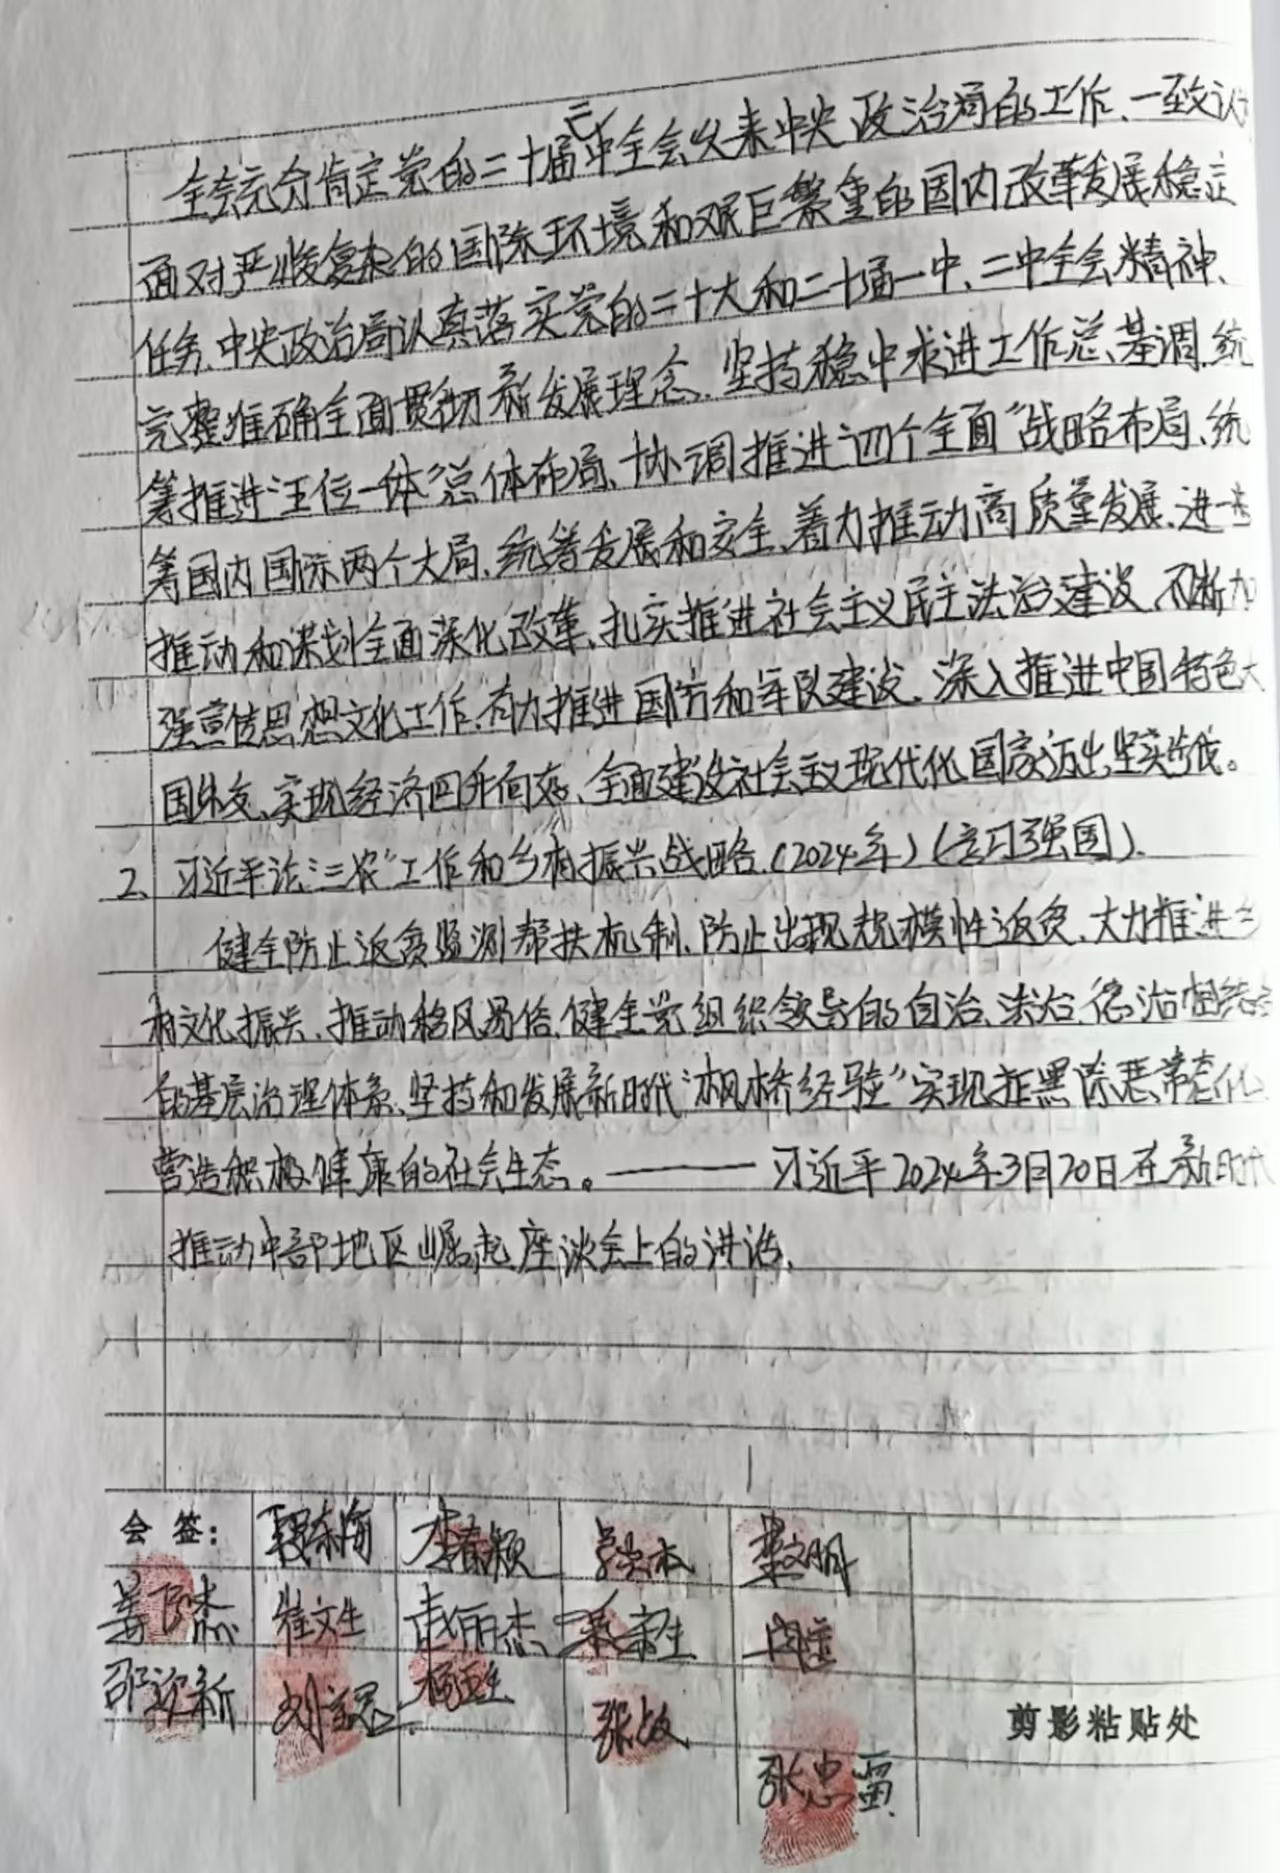 全会充分肯定党的二十届三中全会以来中央政治局的工作、一致认
面对严峻复杂的国际环境和艰巨繁重的国内改革发展稳定
任务、中央政治局认真落实党的二十大和二十届一中、二中全会精神、
完整准确全面贯彻新发展理念、坚持稳中求进工作总基调、统
筹推进“五位一体”总体布局、协调推进“四个全面”战略布局、统
筹国内国际两个大局、统筹发展和安全、着力推动高质量发展、进一步
推动和谋划全面深化改革、扎实推进社会主义民主法治建设、不断加
强宣传思想文化工作、有力推进国防和军队建设、深入推进中国特色大
国外交、实现经济回升向好、全面建设社会主义现代化国家迈出坚实步伐。
2、习近平论“三农”工作和乡村振兴战略（2024年）（学习强国）、
健全防止返贫监测帮扶机制、防止出现规模性返贫、大力推进乡
村文化振兴、推动移风易俗、健全党组织领导的自治、法治、德治相结合
的基层治理体系、坚持和发展新时代“枫桥经验”实现扫黑除恶常态化
营造积极健康的社会生态。——习近平2024年3月20日在新时代
推动中部地区崛起座谈会上的讲话、
会签： 李春颖
崔文生 赵丽杰
邵迎新
张敏
剪影粘贴处
张忠雷